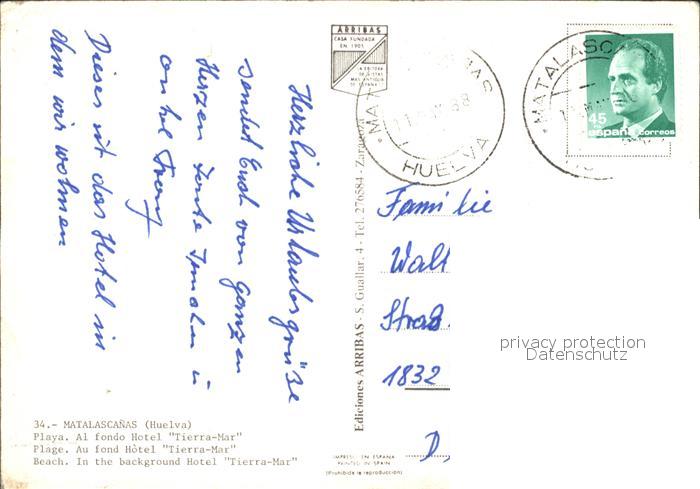 Herzliche Urlaubsgrüße
sendet Euch von ganzen
Herzen Tante
Dieses ist das Hotel in
dem wir wohnen
ARRIBAS
CASA FUNDADA
EN 1905
LA EDITORA
DE VISTAS
MAS ANTIGUA
DE ESPAÑA
MATALASCAÑAS
88
HUELVA
MATALASC
45
españa correos
Familie
Walt
Straß.
1832
D,
privacy protection
Datenschutz
Ediciones ARRIBAS - S. Guallar, 4 - Tel. 276884 - Zaragoza
34.- MATALASCAÑAS (Huelva)
Playa. Al fondo Hotel "Tierra-Mar"
Plage. Au fond Hôtel "Tierra-Mar"
Beach. In the background Hotel "Tierra-Mar"
IMPRESO EN ESPAÑA
PRINTED IN SPAIN
(Prohibida la reproducción)